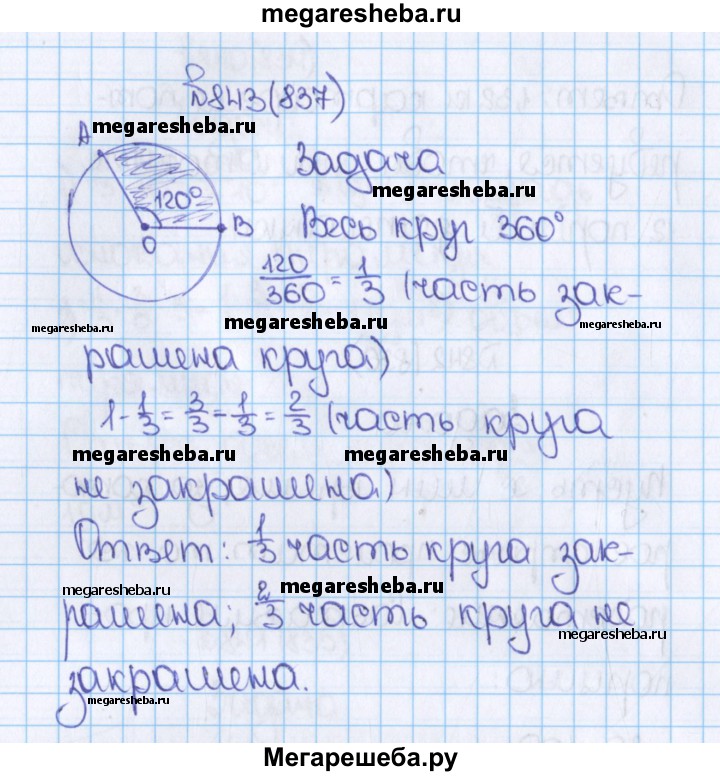 megaresheba.ru
№843(837)
megaresheba.ru
A
120°
O
B
Задача
megaresheba.ru
Весь круг 360°
120/360 = 1/3 (часть зак-
megaresheba.ru
megaresheba.ru
megaresheba.ru
рашена круга)
1 - 1/3 = 3/3 - 1/3 = 2/3 (часть круга
megaresheba.ru
megaresheba.ru
не закрашена)
Ответ: 1/3 часть круга зак-
megaresheba.ru
megaresheba.ru
рашена; 2/3 часть круга не
megaresheba.ru
закрашена.
megaresheba.ru
Мегарешеба.ру